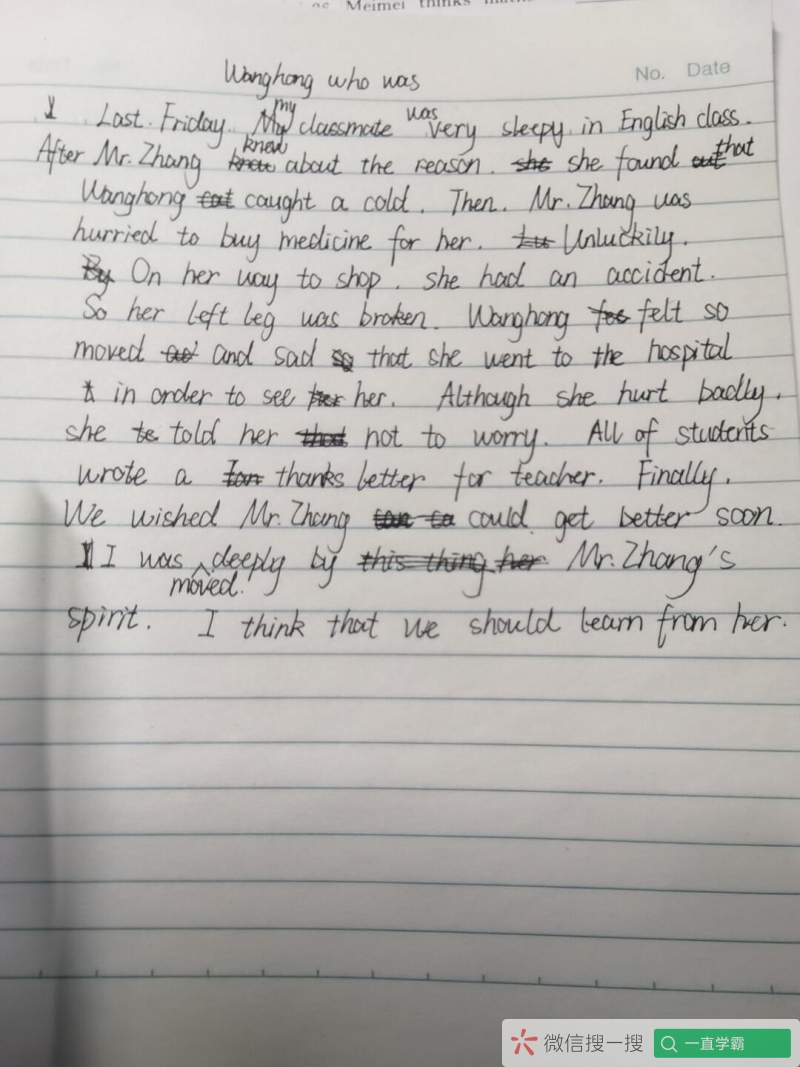 Meimei thinks
No. Date
Wanghong who was
I Last Friday. My my classmate was very sleepy in English class.
After Mr. Zhang knew knew about the reason. she she found out that
Wanghong cat caught a cold. Then. Mr. Zhang was
hurried to buy medicine for her. Lu Unluckily.
By On her way to shop. she had an accident.
So her left leg was broken. Wanghong felt so
moved and sad so that she went to the hospital
in order to see her her. Although she hurt badly.
she te told her that not to worry. All of students
wrote a thanks better for teacher. Finally.
We wished Mr. Zhang could get better soon.
I I was moved. deeply by this thing her Mr. Zhang's
spirit. I think that we should learn from her.
微信搜一搜
一直学霸